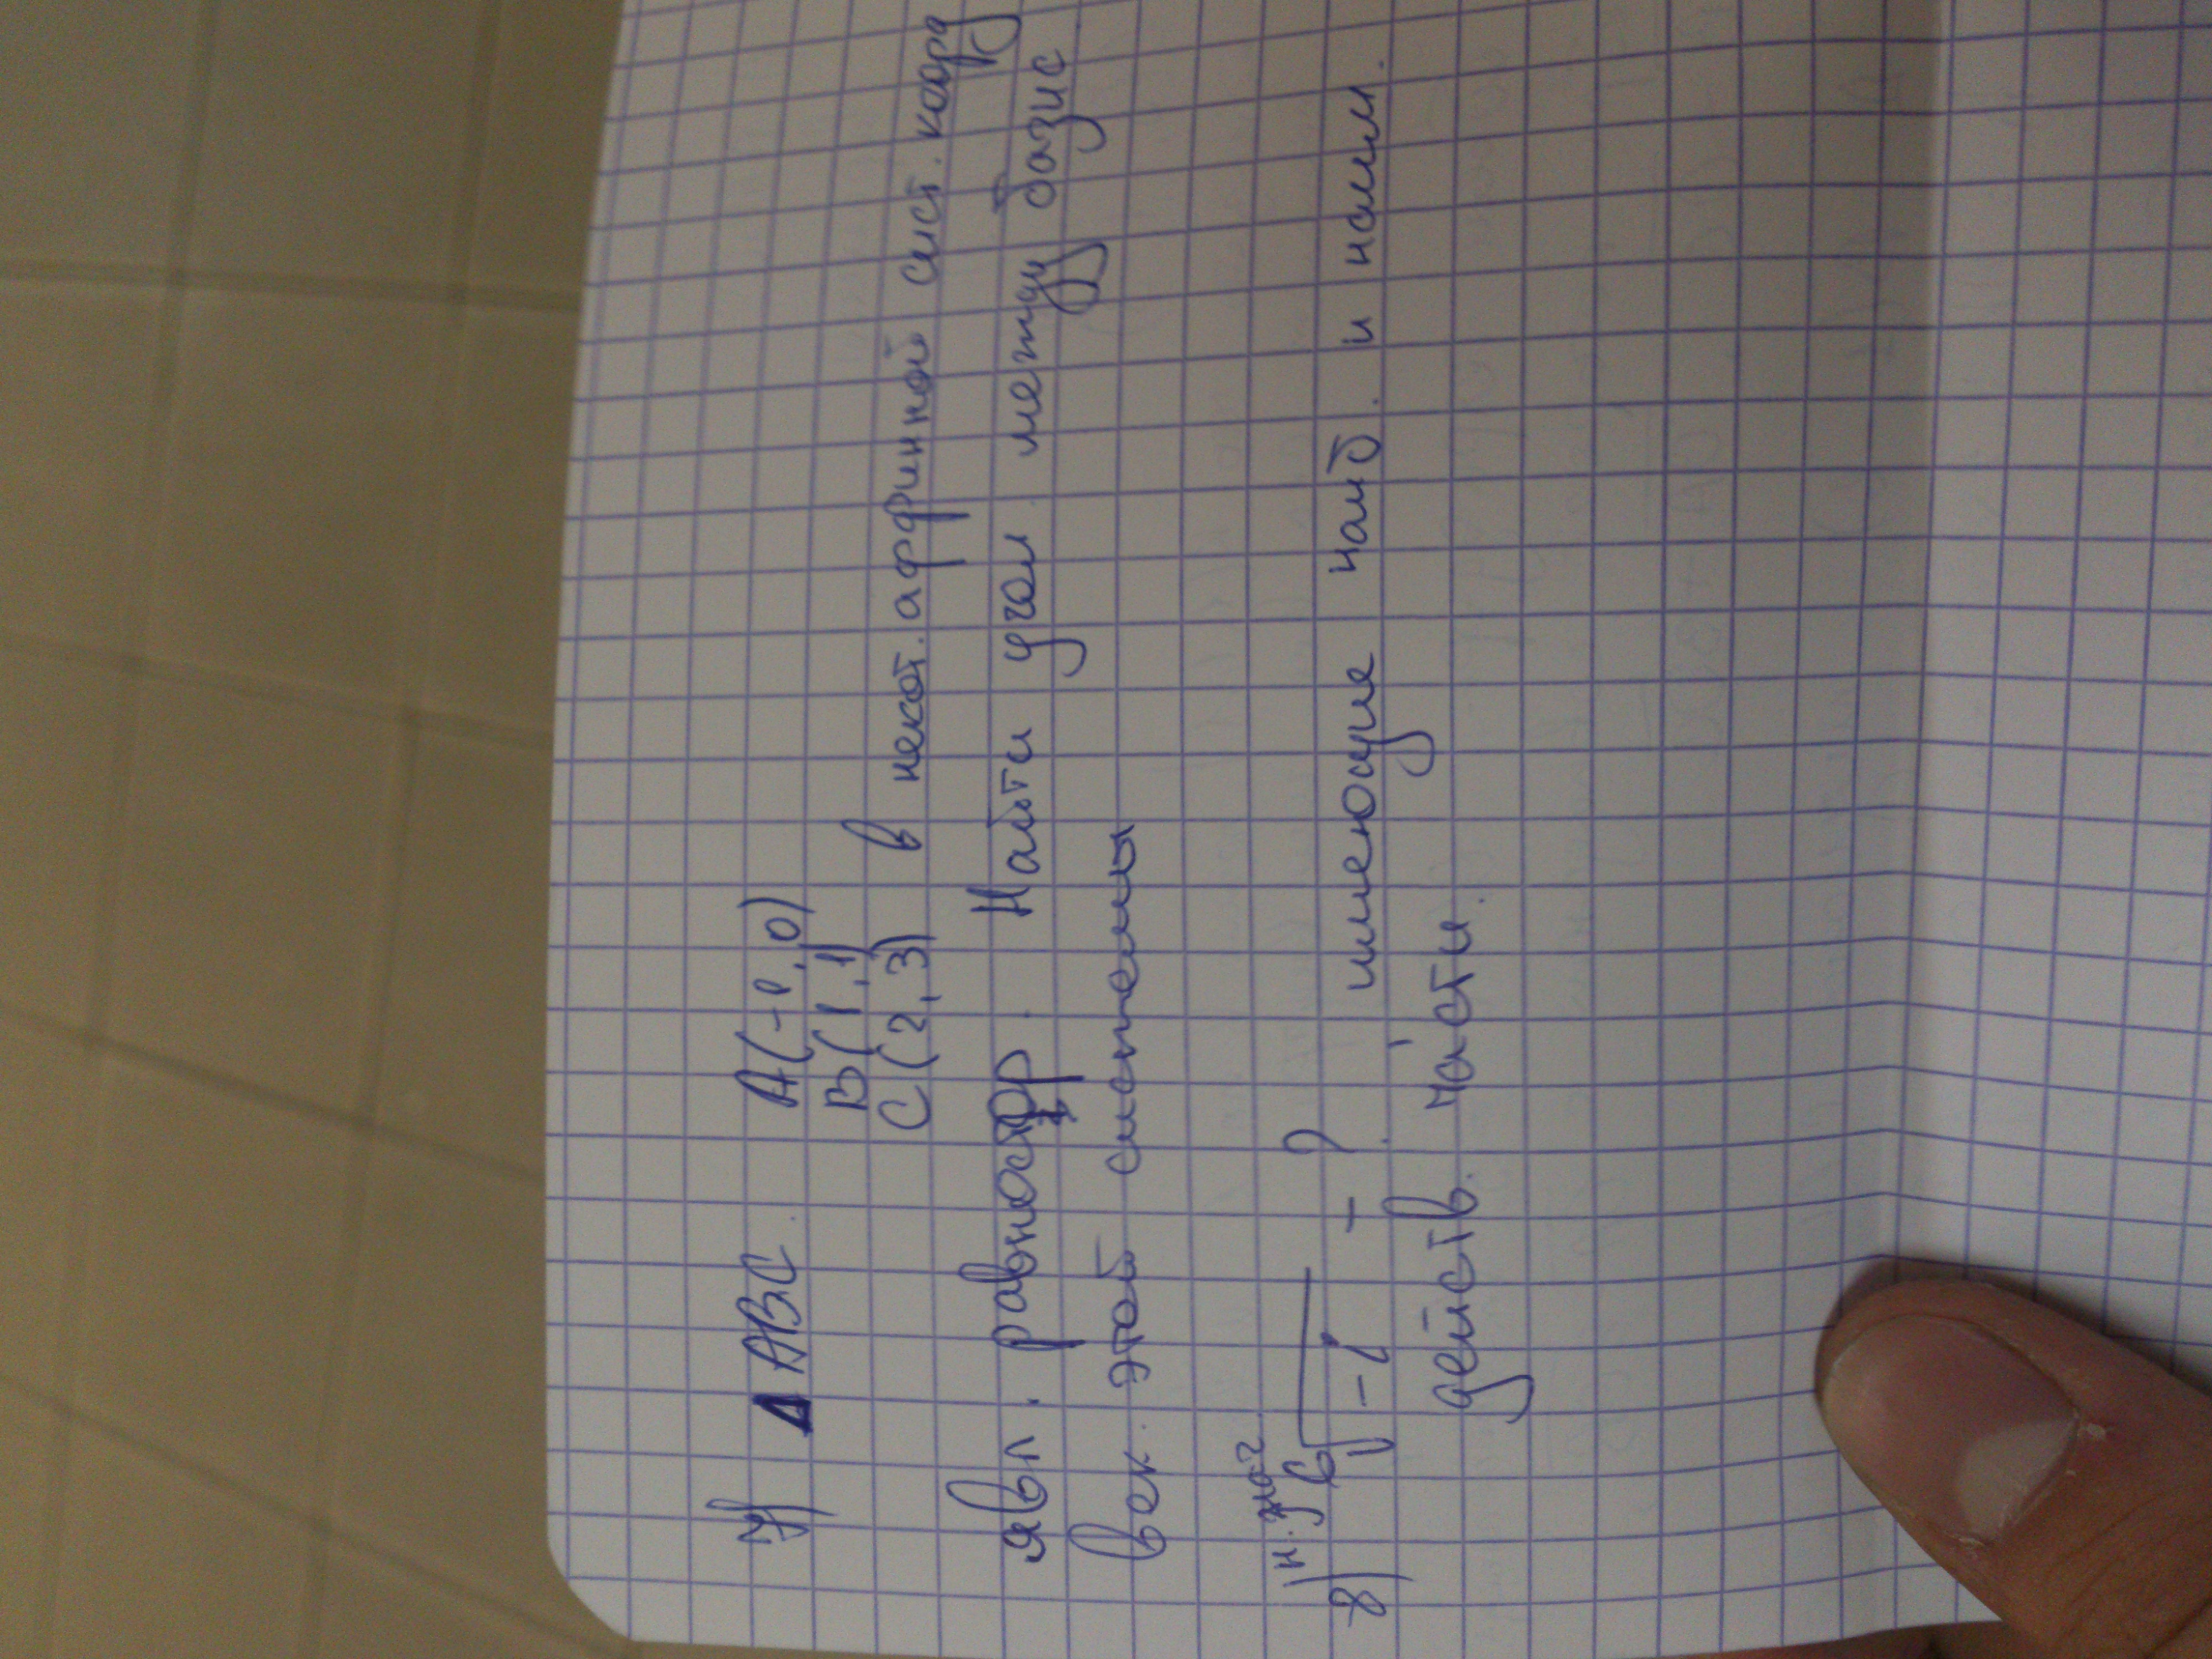 7) Δ ABC. A(-1, 0)
B(1, 1)
C(2, 3) в некот. аффинной сист. коорд
явл. равностор. Найти угол между базис
век. этой системы
н. знач.
8) ⁶√-i - ? имеющие наиб. и наим.
действ. части.